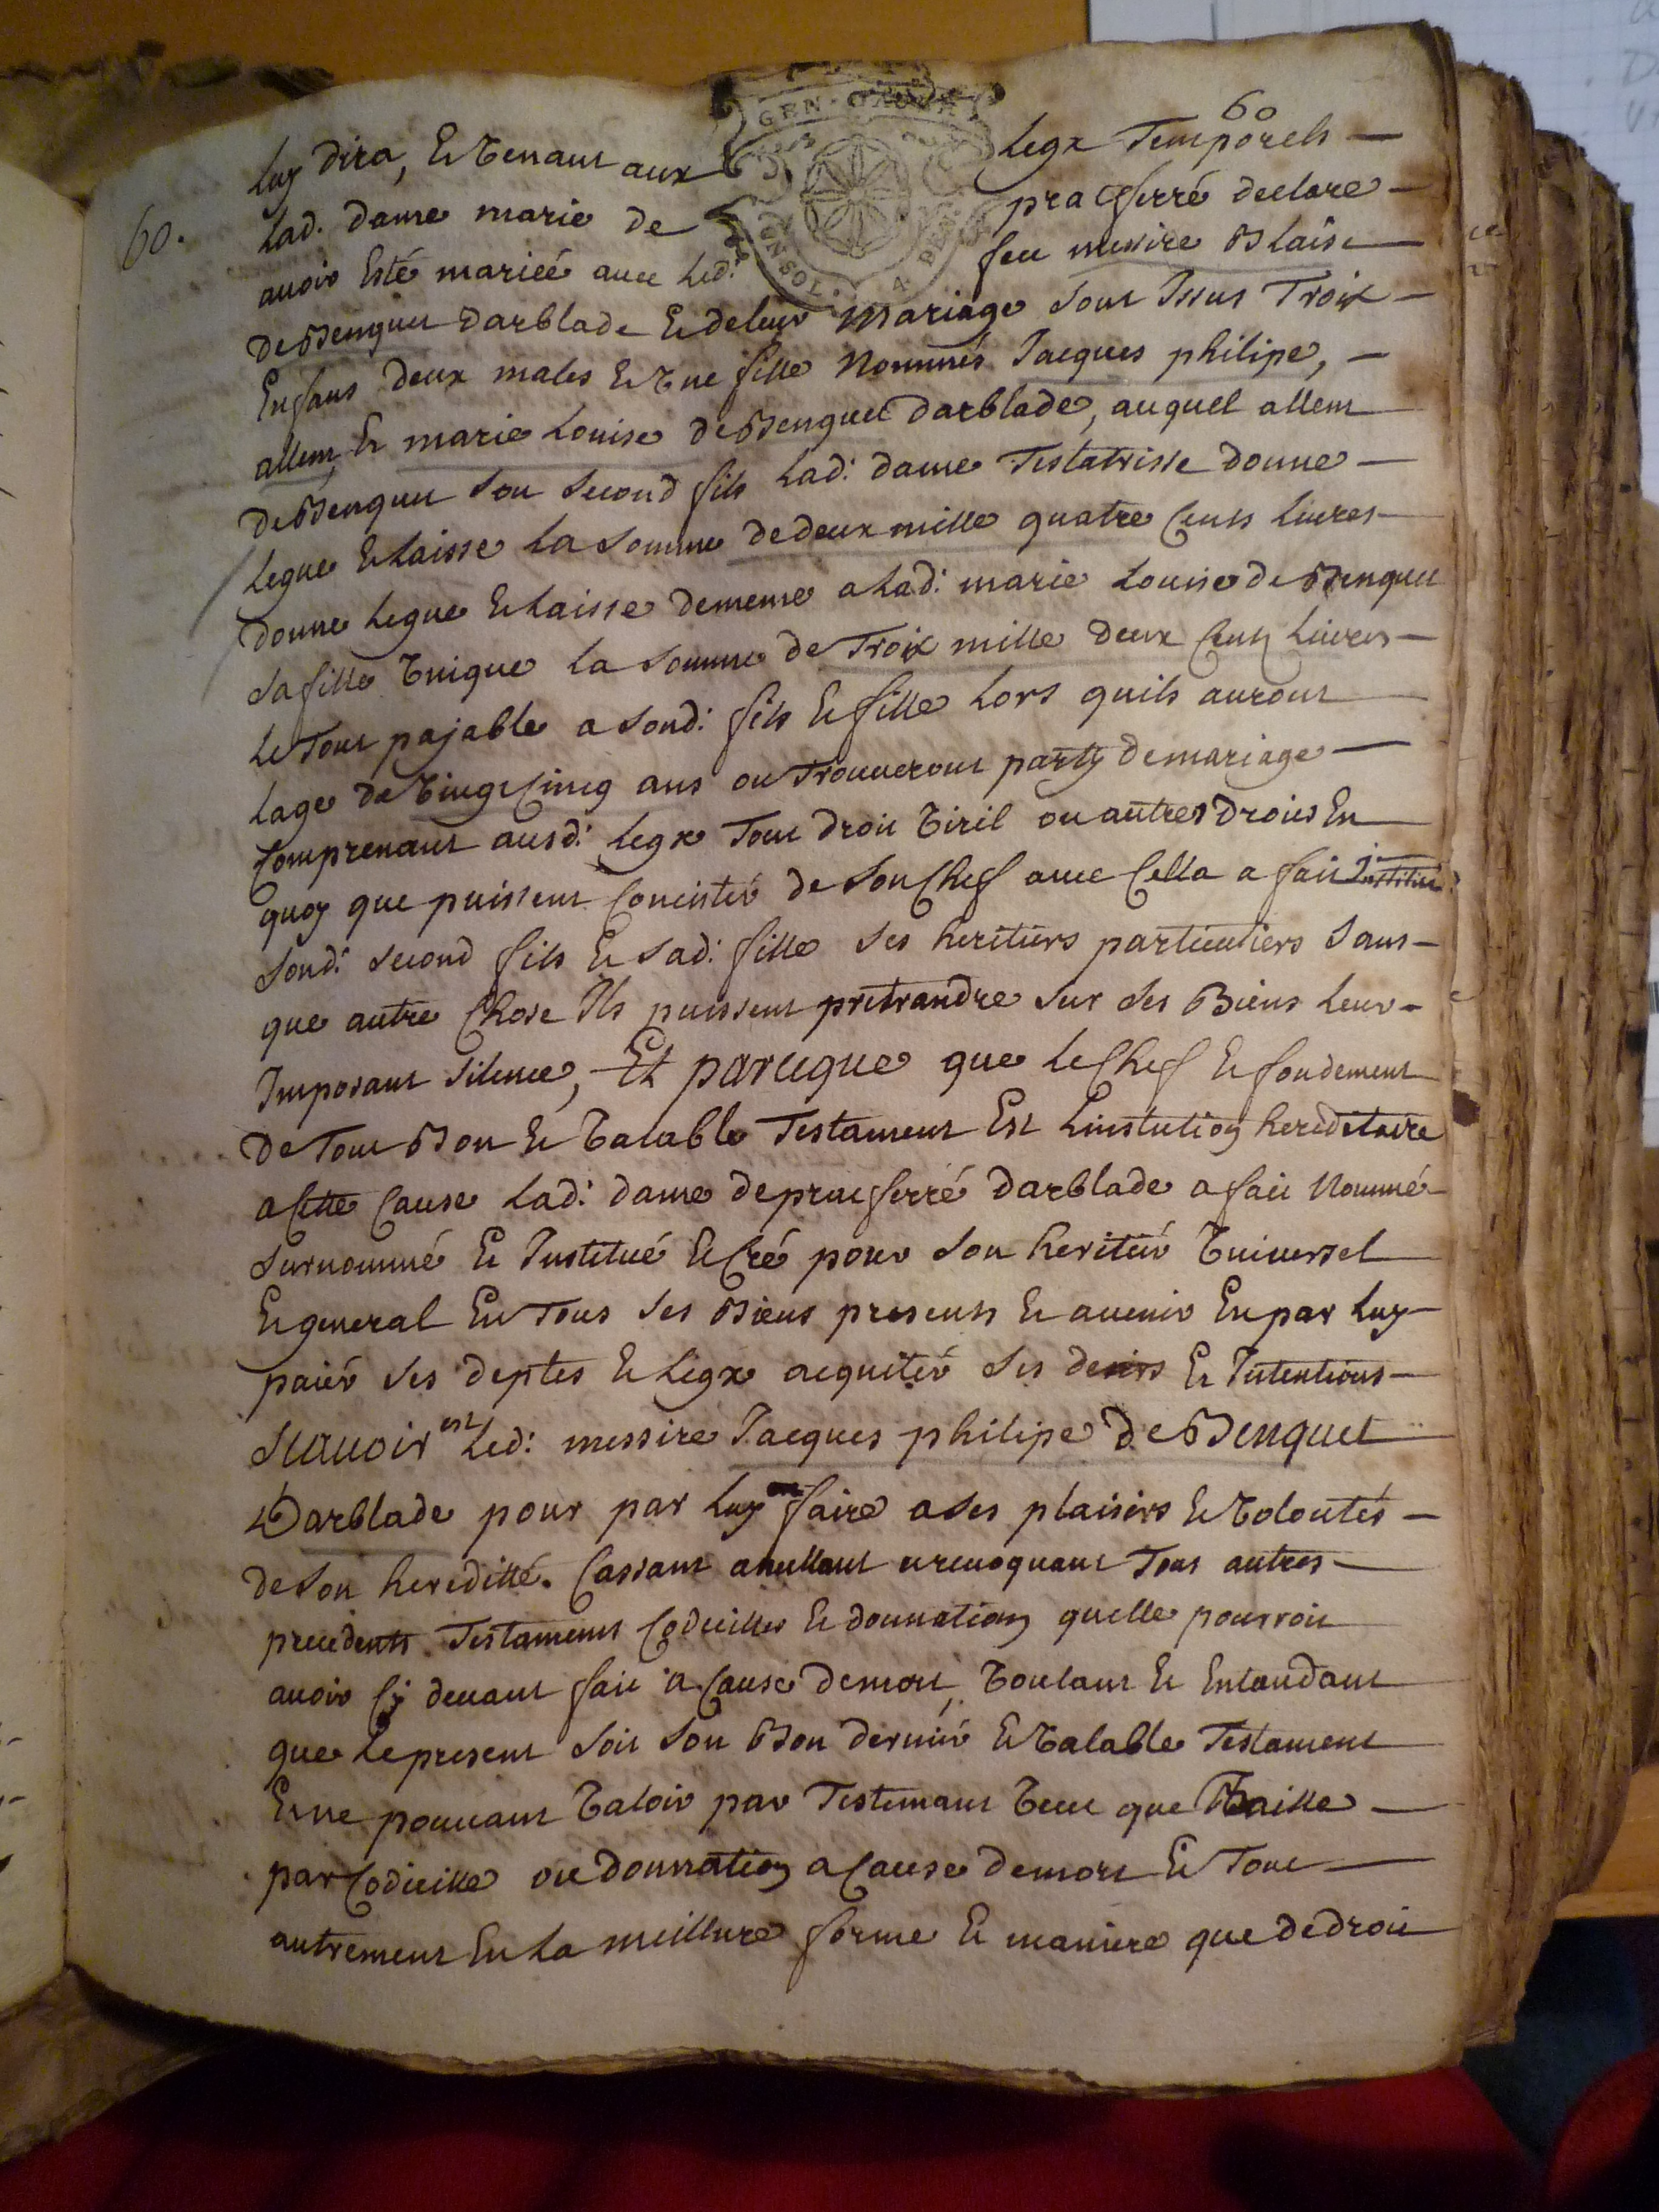 60
luy dira, Et venant aux legx Temporels
60.
Lad. dame marie de pracferré declare
avoir Esté marieé avec led: feu messire Blaise
de Benquet darblade Et de leur Mariage sont Issus Trois
Enfans deux males Et Une fille Nommés Jacques philipe,
allem, Et marie Louise de Benquet darblade, auquel allem
de Benquet son second fils Lad: dame Testatrisse donne
legue Et laisse la somme de deux mille quatre Cents livres
donne legue Et laisse de meme a Lad: marie Louise de Benquet
sa fille Unique la somme de Troix mille deux Cents livres
le Tout pajable a sond: fils Et fille Lors quils auront
lage de Vingt Cincq ans ou Trouveront party de mariage
Comprenant ausd: legx Tout droit Viril ou autres droits En
quoy que puissent Concister de son Chef avec Cella a fait Institué
sond: second fils Et sad: fille ses heritiers particuliers sans
que autre Chose Ils puissent pretrandre sur ses Biens leur
Imposant silence, Et parceque que le Chef Et fondement
de Tout Bon Et Valable Testament Est Linstution hereditaire
a Cette Cause Lad: dame de pracferré darblade a fait Nommé
surnommé Et Institué Et Cré pour son heritier Universel
Et general En Tous ses Biens presents Et avenir En par luy
paier ses deptes Et legx acquiter ses desirs Et Intentions
scavoir est led: messire Jacques philipe de Benquet
Darblade pour par luy faire a ses plaisirs Et Volontés
de son heredité. Cassant anullant et revoquant Tous autres
precedents Testaments Codicilles Et donnations quelle pourroit
avoir Cy devant fait a Cause de mort, Voulant Et Entandant
que le present soit son Bon dernier Et Valable Testament
Et ne pouvant Valoir par Testemant Veut que Vaille
par Codicille ou donnation a Cause de mort Et Tout
autrement En la meillure forme Et maniere que de droit